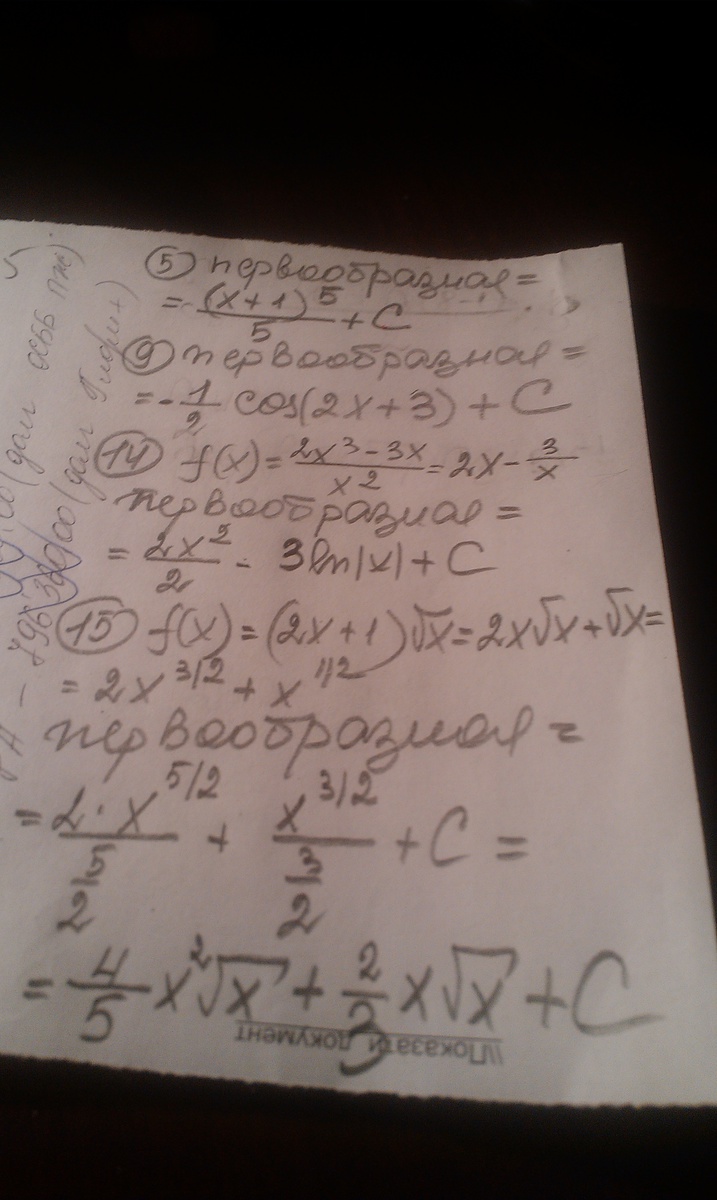 ⑤ первообразная =
= (x+1)^5/5 + C
⑨ первообразная =
= -1/2 cos(2x+3) + C
⑭ f(x) = (2x^3 - 3x)/x^2 = 2x - 3/x
первообразная =
= 2x^2/2 - 3ln|x| + C
⑮ f(x) = (2x+1)√x = 2x√x + √x =
= 2x^3/2 + x^1/2
первообразная =
= 2·x^5/2/(5/2) + x^3/2/(3/2) + C =
= 4/5 x^2√x + 2/3 x√x + C
\\Показати документ